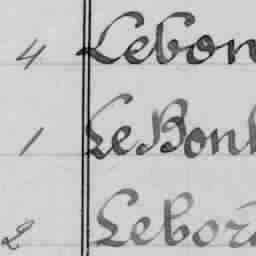 4 Lebon
1 LeBon
2 Lebor